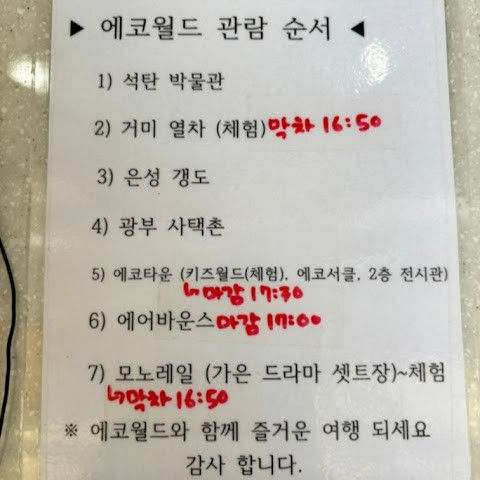 ▶ 에코월드 관람 순서 ◀
1) 석탄 박물관
2) 거미 열차 (체험)막차 16:50
3) 은성 갱도
4) 광부 사택촌
5) 에코타운 (키즈월드(체험), 에코서클, 2층 전시관)
↳마감 17:30
6) 에어바운스마감 17:00
7) 모노레일 (가은 드라마 셋트장)~체험
↳막차 16:50
※ 에코월드와 함께 즐거운 여행 되세요
감사 합니다.